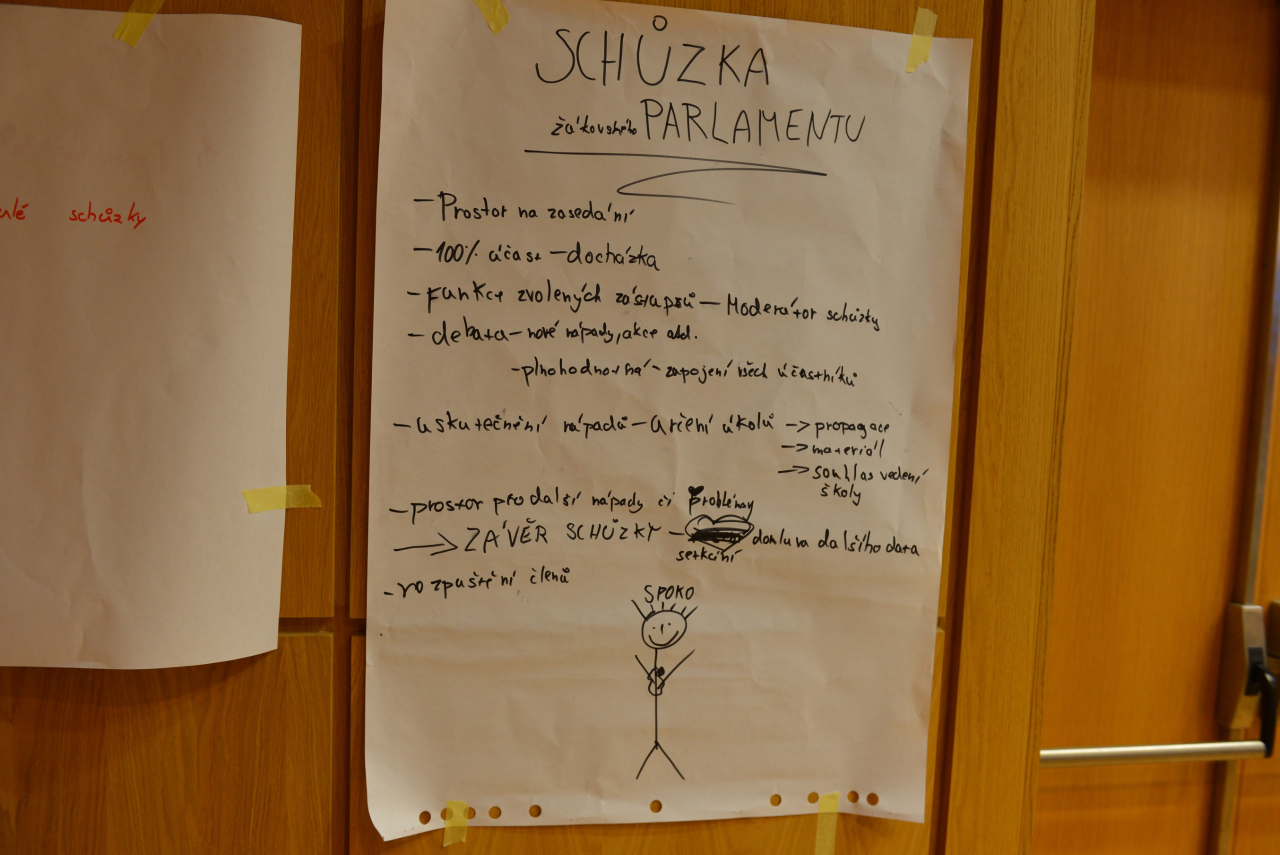 SCHŮZKA
žákovského PARLAMENTU
- Prostor na zasedání
- 100% účast - docházka
- funkce zvolených zástupců - Moderátor schůzky
- debata - nové nápady, akce atd.
- plnohodnotná - zapojení všech účastníků
- uskutečnění nápadů - určení úkolů -> propagace
-> materiál
-> souhlas vedení
školy
- prostor pro další nápady či problémy
-> ZÁVĚR SCHŮZKY - domluva dalšího data
setkání
- rozpuštění členů
SPOKO
schůzky